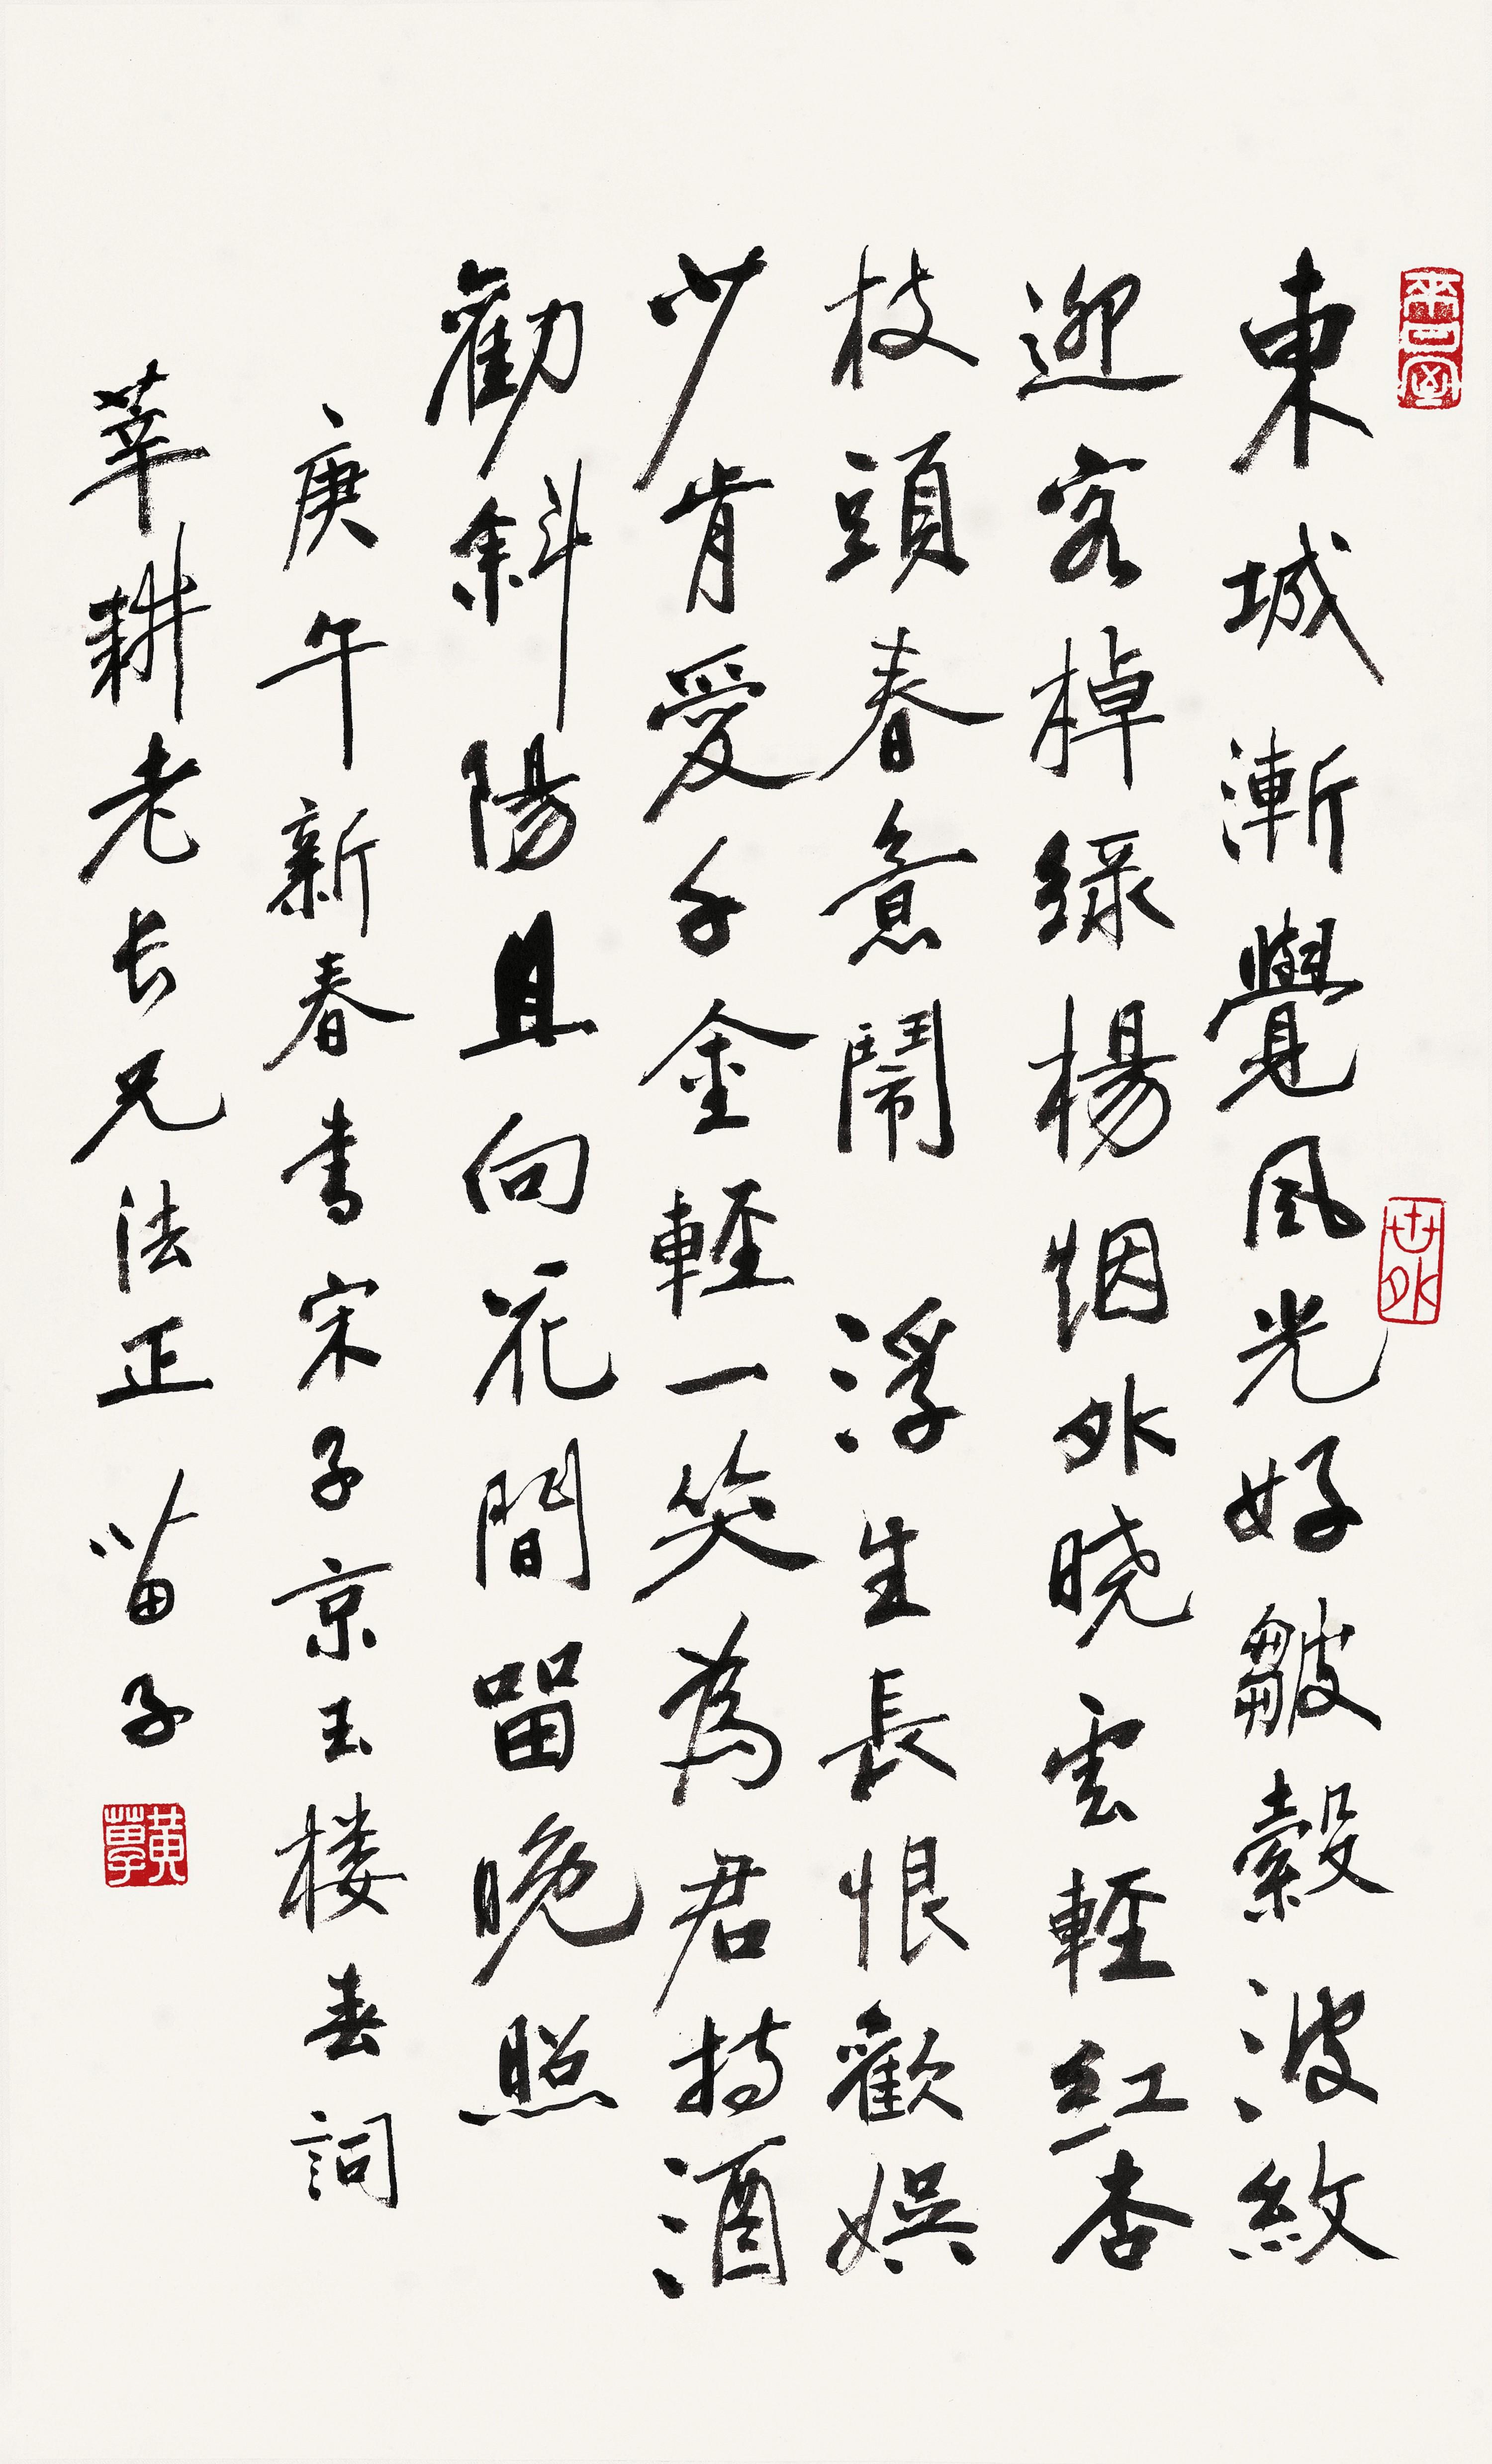 東城漸覺風光好皺縠波紋
迎客棹綠楊烟外曉雲輕紅杏
枝頭春意鬧 浮生長恨歡娛
少肯愛千金輕一笑為君持酒
勸斜陽且向花間留晚照
庚午新春書宋子京玉楼春詞
莘耕老长兄法正 苗子
世外
黃苗子